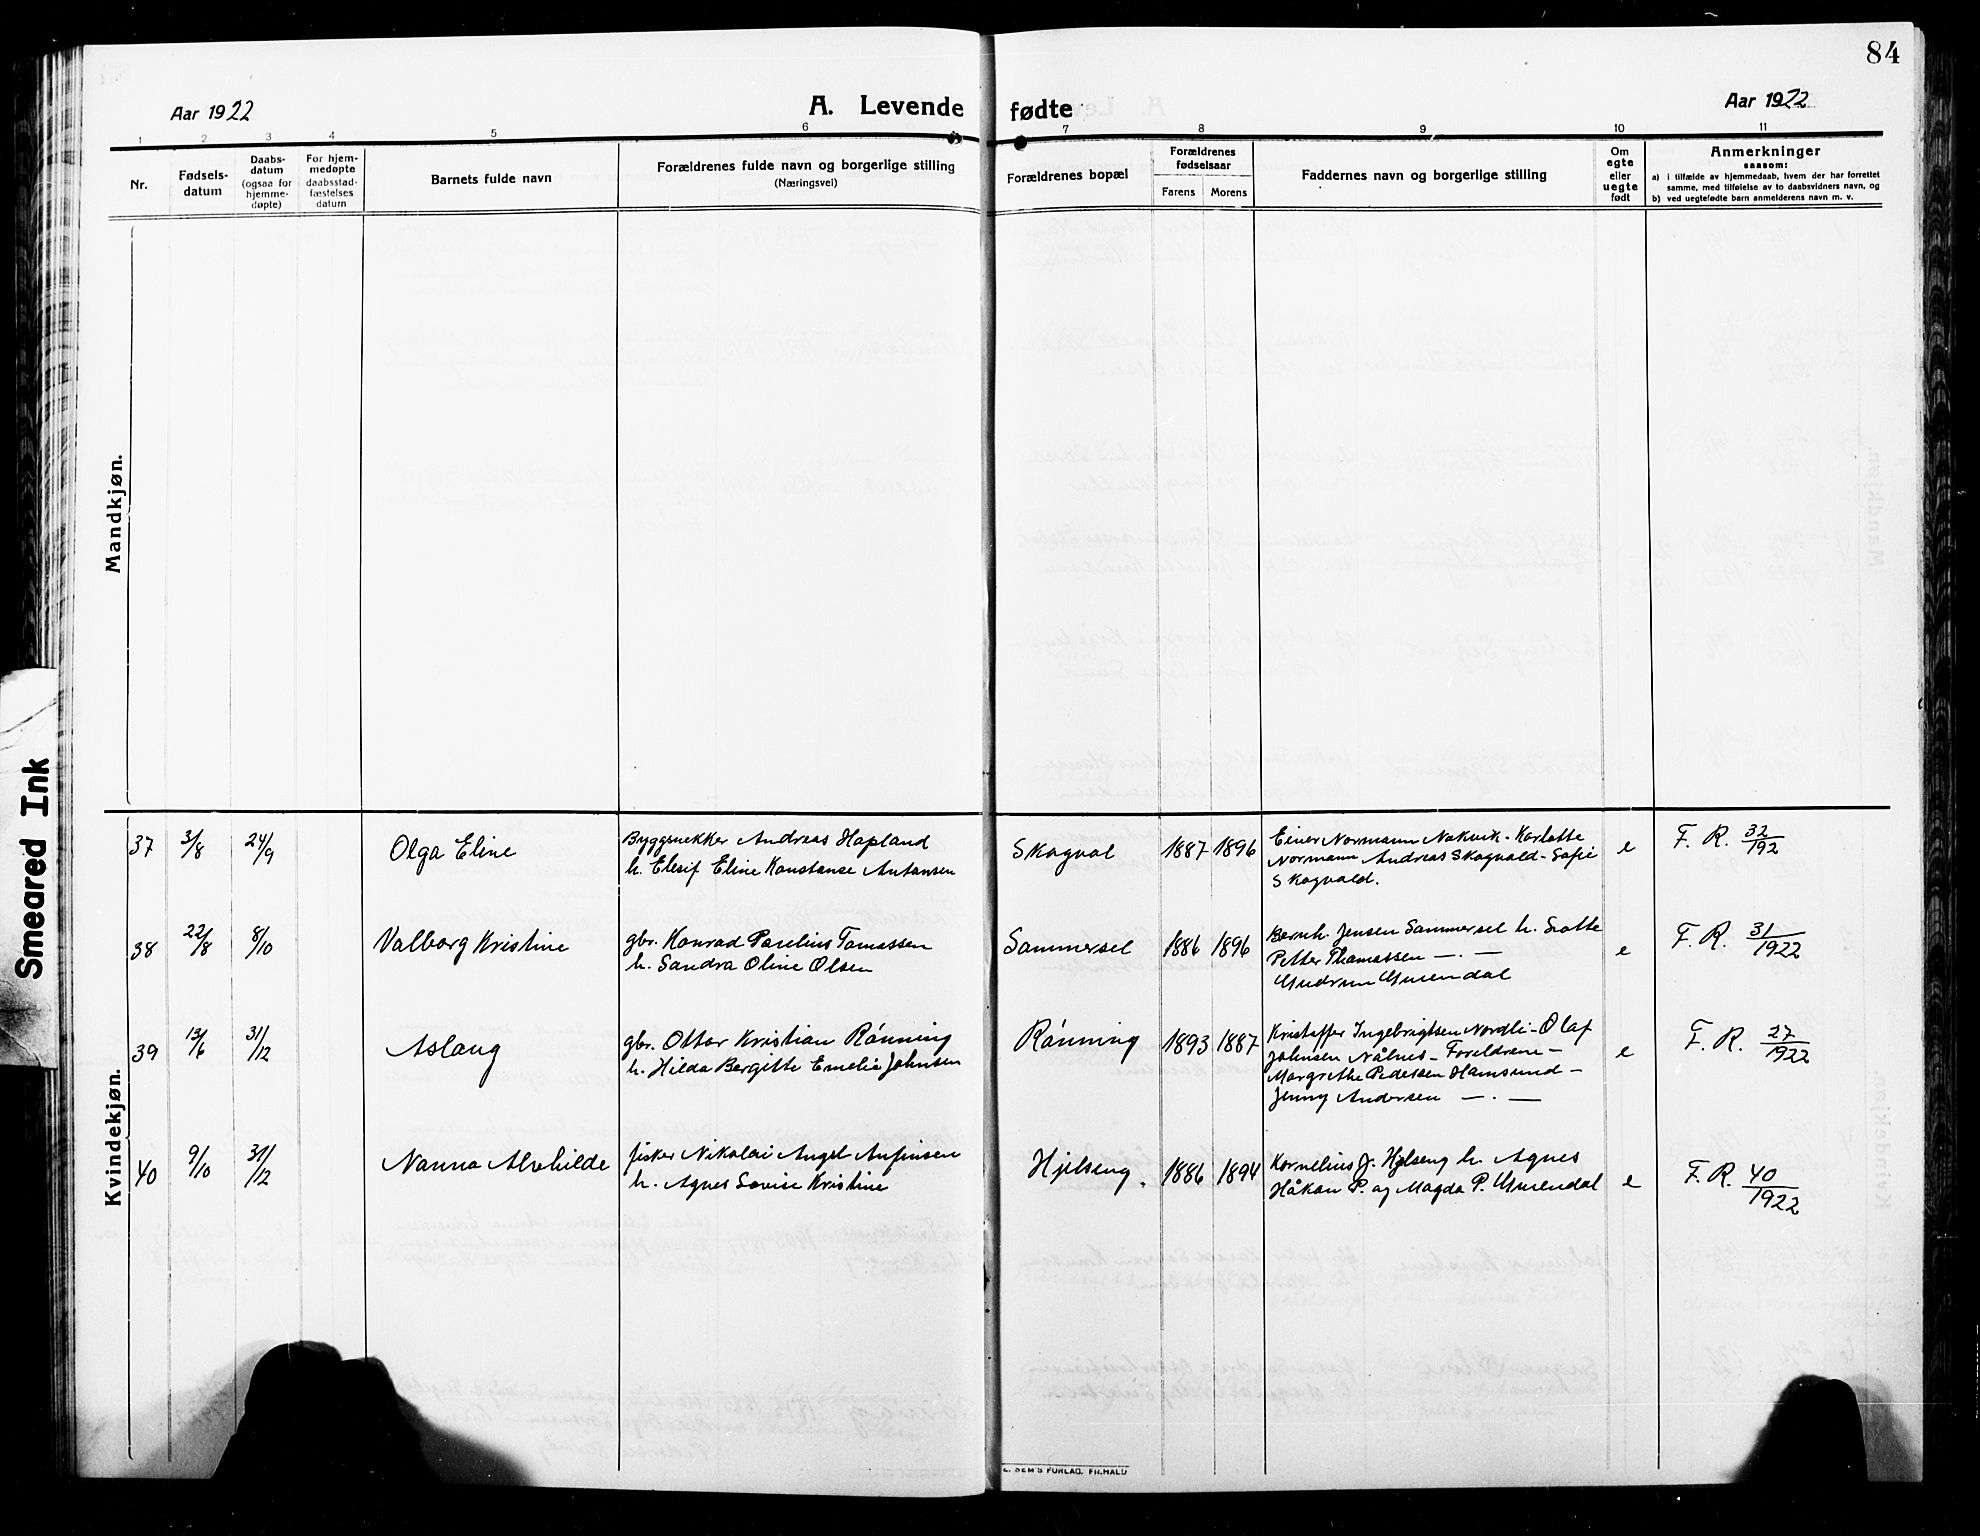 84
Aar 1922
A. Levende fødte
Aar 1922
1 2 3 4 5 6 7 8 9 10 11
Nr.
Fødsels-
datum
Daabs-
datum
(ogsaa for
hjemme-
døpte)
For hjem-
medøpte
daabsstad-
fæstelses
datum
Barnets fulde navn
Forældrenes fulde navn og borgerlige stilling
(Næringsvei)
Forældrenes bopæl
Forældrenes
fødselsaar
Farens Morens
Faddernes navn og borgerlige stilling
Om
egte
eller
uegte
født
Anmerkninger
saasom:
a) i tilfælde av hjemmedaab, hvem der har forrettet
samme, med tilføielse av to daabsvidners navn, og
b) ved uegtefødte barn anmelderens navn m. v.
Mandkjøn.
Kvindekjøn.
37 3/8 24/9 Olga Eline
Byggsnekker Andreas Hopland
h. Elesif Eline Konstanse Antonsen
Skogvol 1887 1896
Einer Normann Nakvik - Karlotte
Normann Andreas Skogvold - Sofie
Skogvold.
e F. R. 32/192
38 22/8 8/10 Valborg Kristine
gbr. Konrad Parelius Tomassen
h. Sandra Oline Olsen
Sommersel 1886 1896
Bernh. Jensen Sommersel h. Lotte
Petter Thomassen — . —
Gudrun
e F. R. 31/1922
39 13/6 31/12 Aslaug
gbr. Ottar Kristian Rönning
h. Hilda Bergitte Emelie Johnsen
Rönning 1893 1887
Kristoffer Ingebrigtsen Nordli - Olaf
Johnsen Nålnes - Foreldrene -
Margrethe Pedersen Hamsund -
Jenny Andersen — . —
e F. R. 27/1922
40 9/10 31/12 Nanna Alvhilde
fisker Nikolai Angel Anfinsen
h. Agnes Lovise Kristine
Hjelseng. 1886 1894
Kornelius J. Hjelseng h. Agnes
Håkon P. og Magda P.
e F. R. 40/1922
E. SEM'S FORLAG. FR.HALD
Smeared Ink